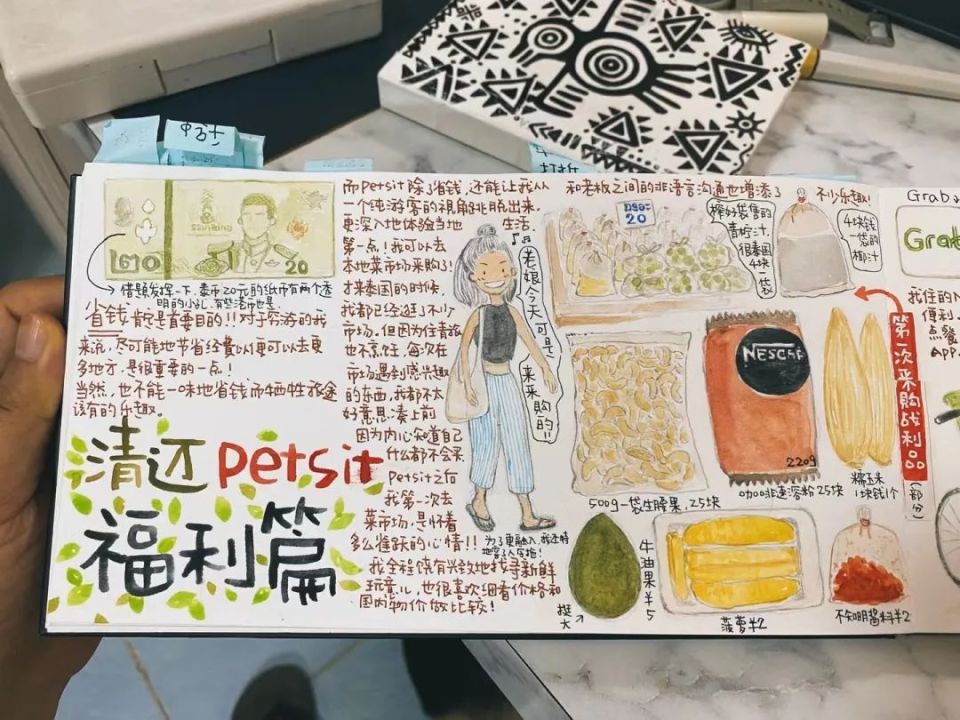 中古ť
20
→ 借题发挥一下,泰币20元的纸币有两个透
明的小孔,有些港币也是.
省钱肯定是首要目的!!对于穷游的我
来说,尽可能地节省经费以便可以去更
多地方,是很重要的一点!
当然,也不能一味地省钱而牺牲旅途
该有的乐趣.
清迈 Petsit
福利篇
而Petsit除了省钱,还能让我从
一个纯游客的视角跳脱出来,
更深入地体验当地生活.
第一点!我可以去
本地菜市场采购了!
才来泰国的时候,
我都已经逛了不少
市场,但因为住青旅
也不烹饪,每次在
市场遇到感兴趣
的东西,我都不太
好意思凑上前
因为内心知道自己
什么都不会买.
Petsit之后
我第一次去
菜市场,是怀着
多么雀跃的心情!!
我全程饶有兴致地找寻新鲜
玩意儿,也很喜欢细看价格和
国内物价做比较!
老娘今天可是
来采购的!!
和老板之间的非语言沟通也增添了
不少乐趣!
20
榨好袋售的
青柠汁,
很泰国
4块
一袋
4块钱
一袋的
椰汁
第一次采购战利品
(部分)
500g一袋生腰果,25块
NESCAF
220g
咖啡速溶粉25块
糯玉米
1块钱1个
挺大
牛油果¥5
菠萝¥2
不知明酱料¥2
Grab
Grab
我住的
便利.
点餐
APP.